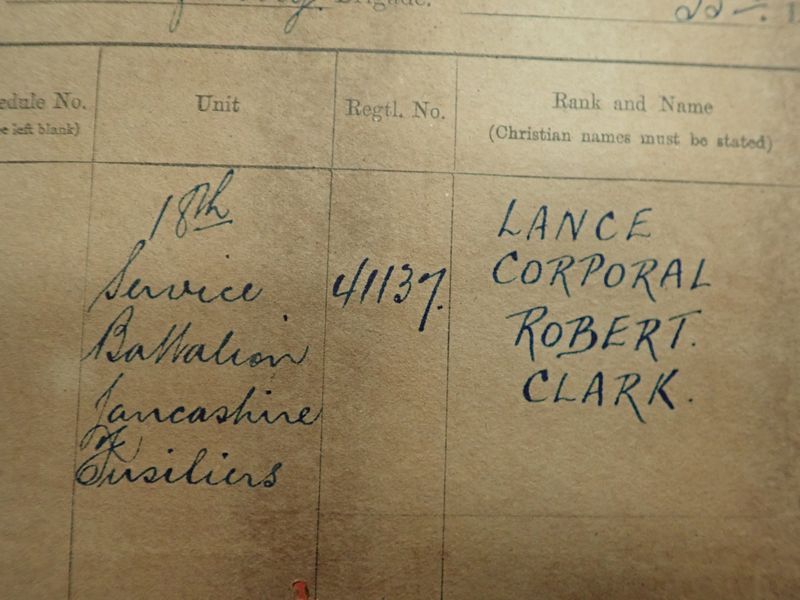 Brigade.
edule No. Unit Regtl. No. Rank and Name
e left blank) (Christian names must be stated)
18th
Service
Battalion
Lancashire
Fusiliers
41137.
LANCE
CORPORAL
ROBERT.
CLARK.